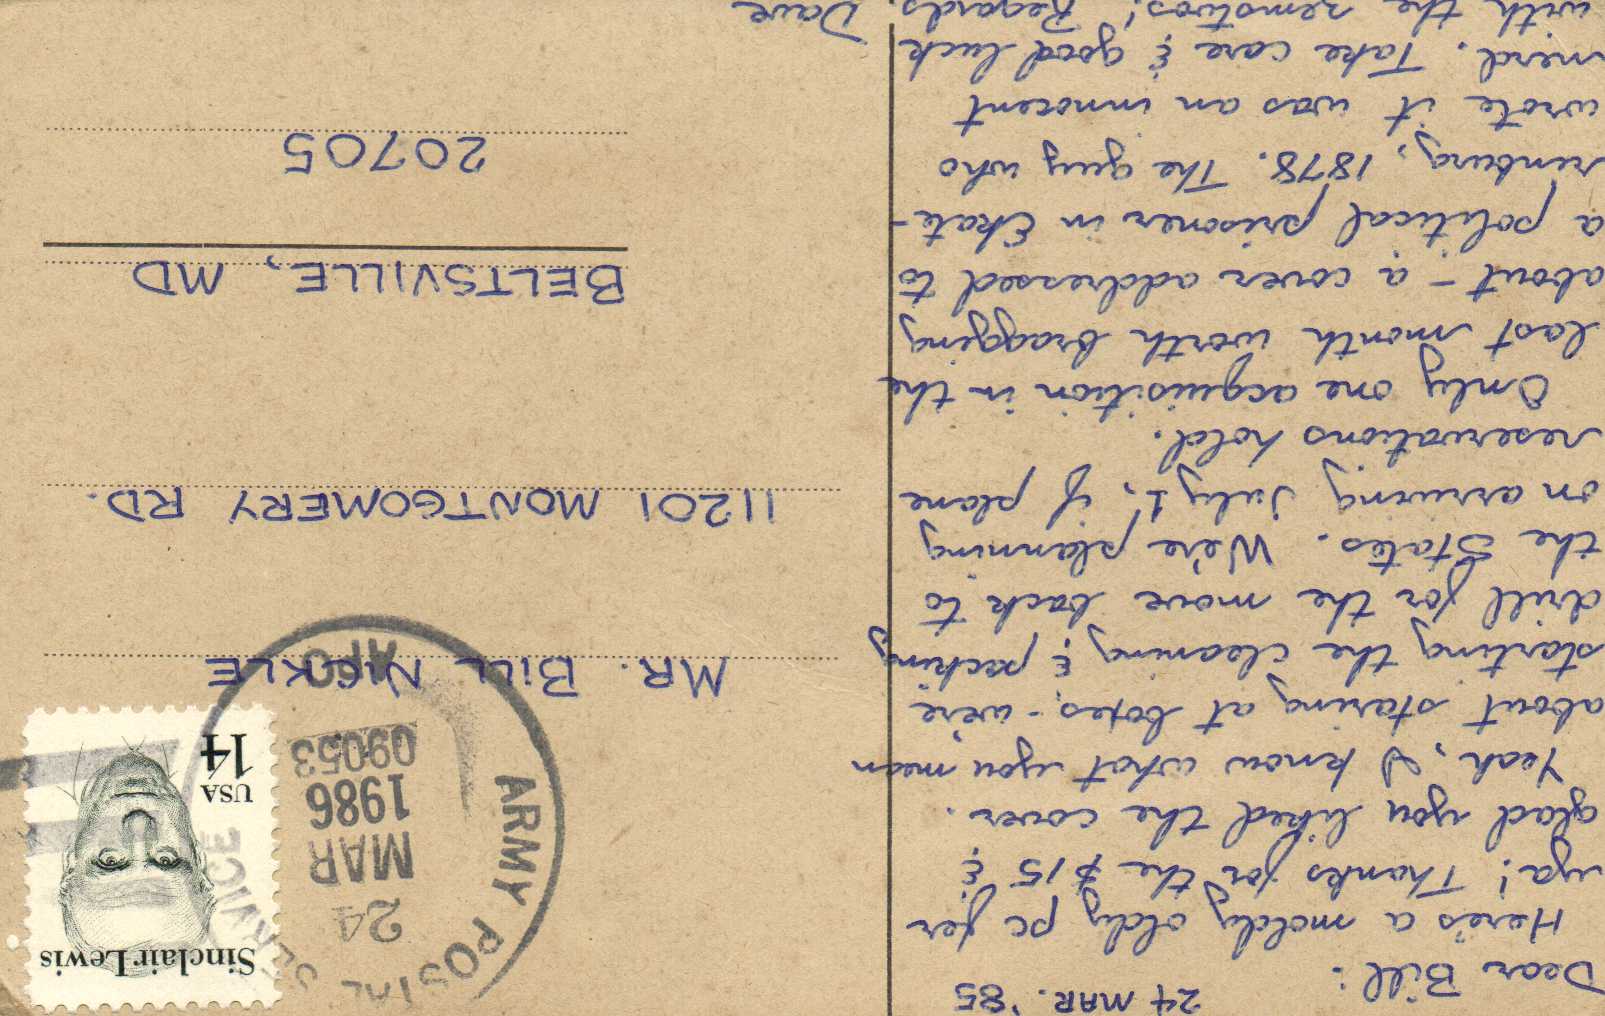 24 MAR. '85
Dear Bill:
Here's a moldy oldy pc fer
ya! Thanks for the $15 &
glad you liked the cover.
Yeah, I know what you mean
about staring at boxes - we're
starting the cleaning & packing
drill for the move back to
the States. We're planning
on arriving July 1, if plane
reservations hold.
Only one acquisition in the
last month worth bragging
about - a cover addressed to
a political prisoner in Ekate-
rinburg, 1878. The guy who
wrote it was an innocent
nerd. Take care & good luck
with the zemstvos! Regards, Dave
Sinclair Lewis
USA
14
ARMY POSTAL SERVICE
24
MAR
1986
09053
APO
MR. BILL NICKLE
11201 MONTGOMERY RD.
BELTSVILLE, MD
20705